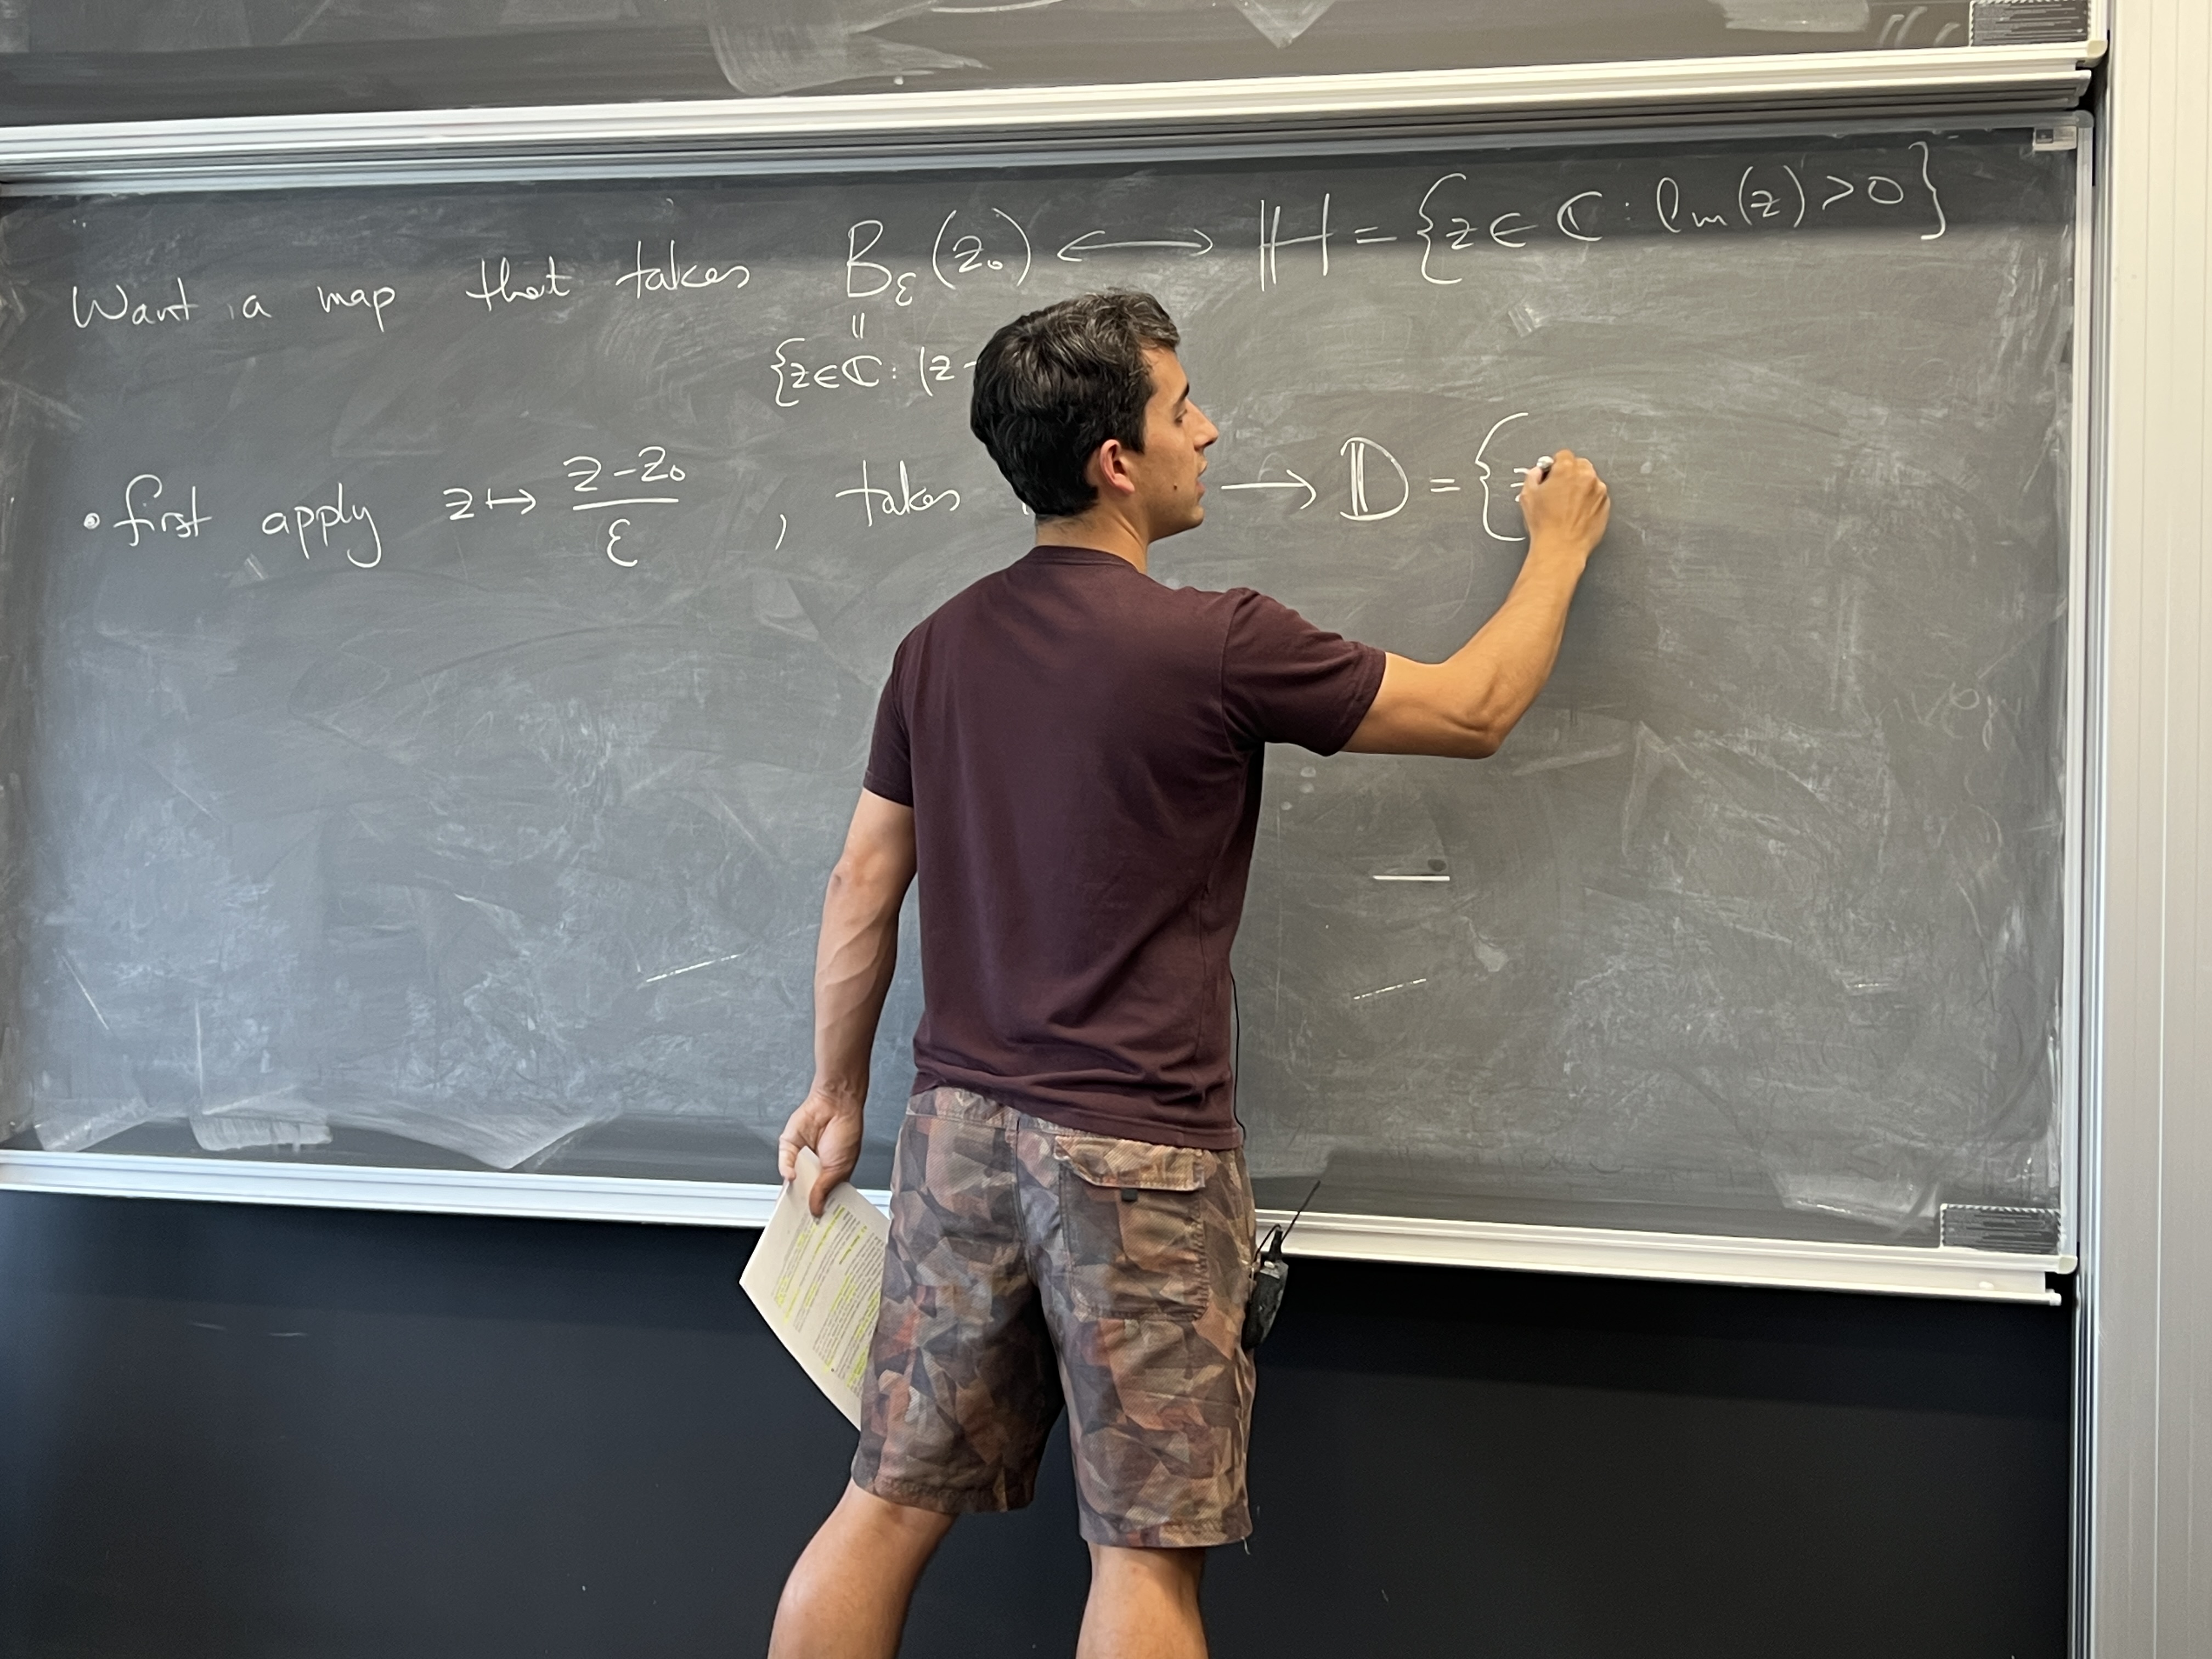 Want a map that takes B_ε(z₀) ⟷ ℍ = {z ∈ ℂ : Im(z) > 0}
||
{z∈ℂ : |z -
• first apply z ↦ (z-z₀)/ε , takes → 𝔻 = {z